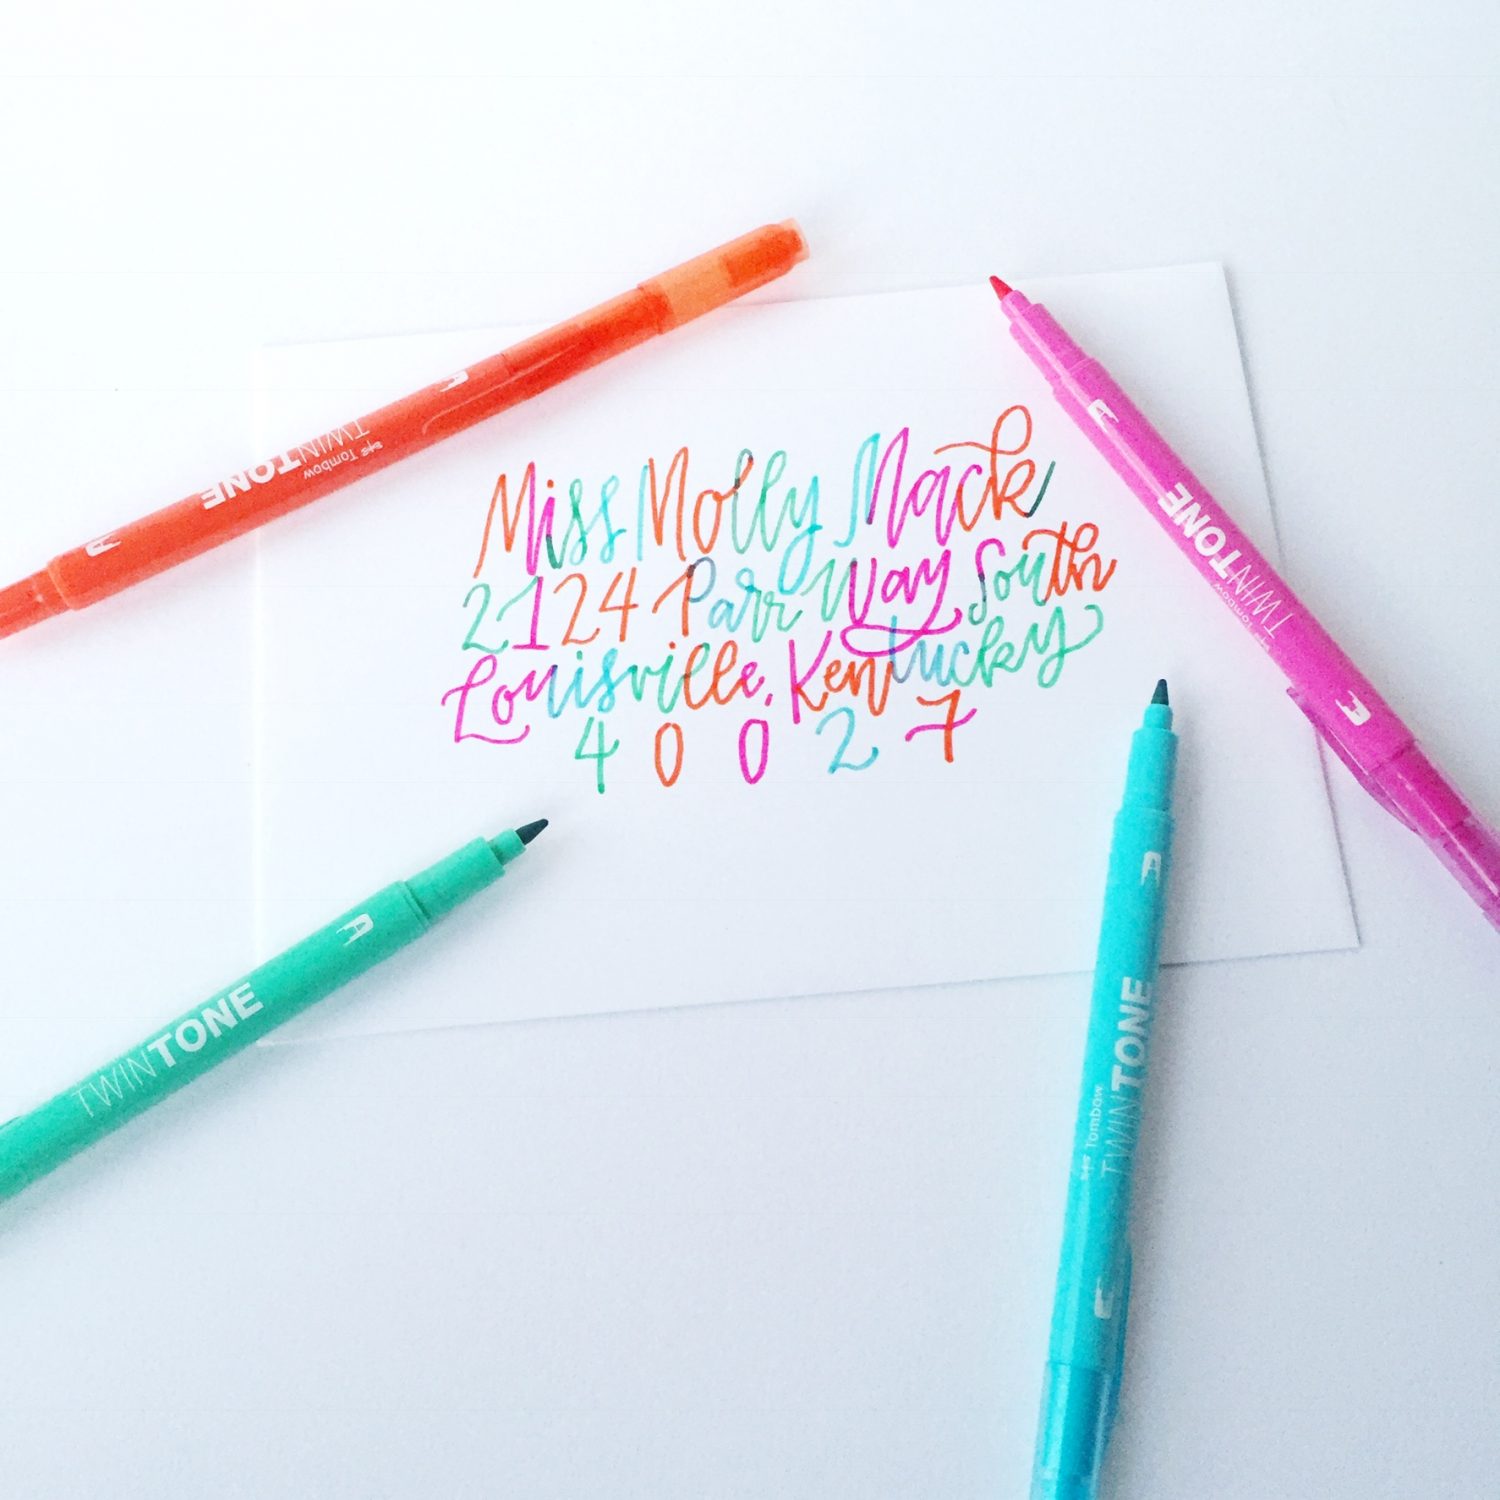 Miss Molly Mack
2124 Parr Way South
Louisville, Kentucky
40027
Tombow
TWINTONE
TWINTONE
Tombow
TWINTONE
Tombow
TWINTONE